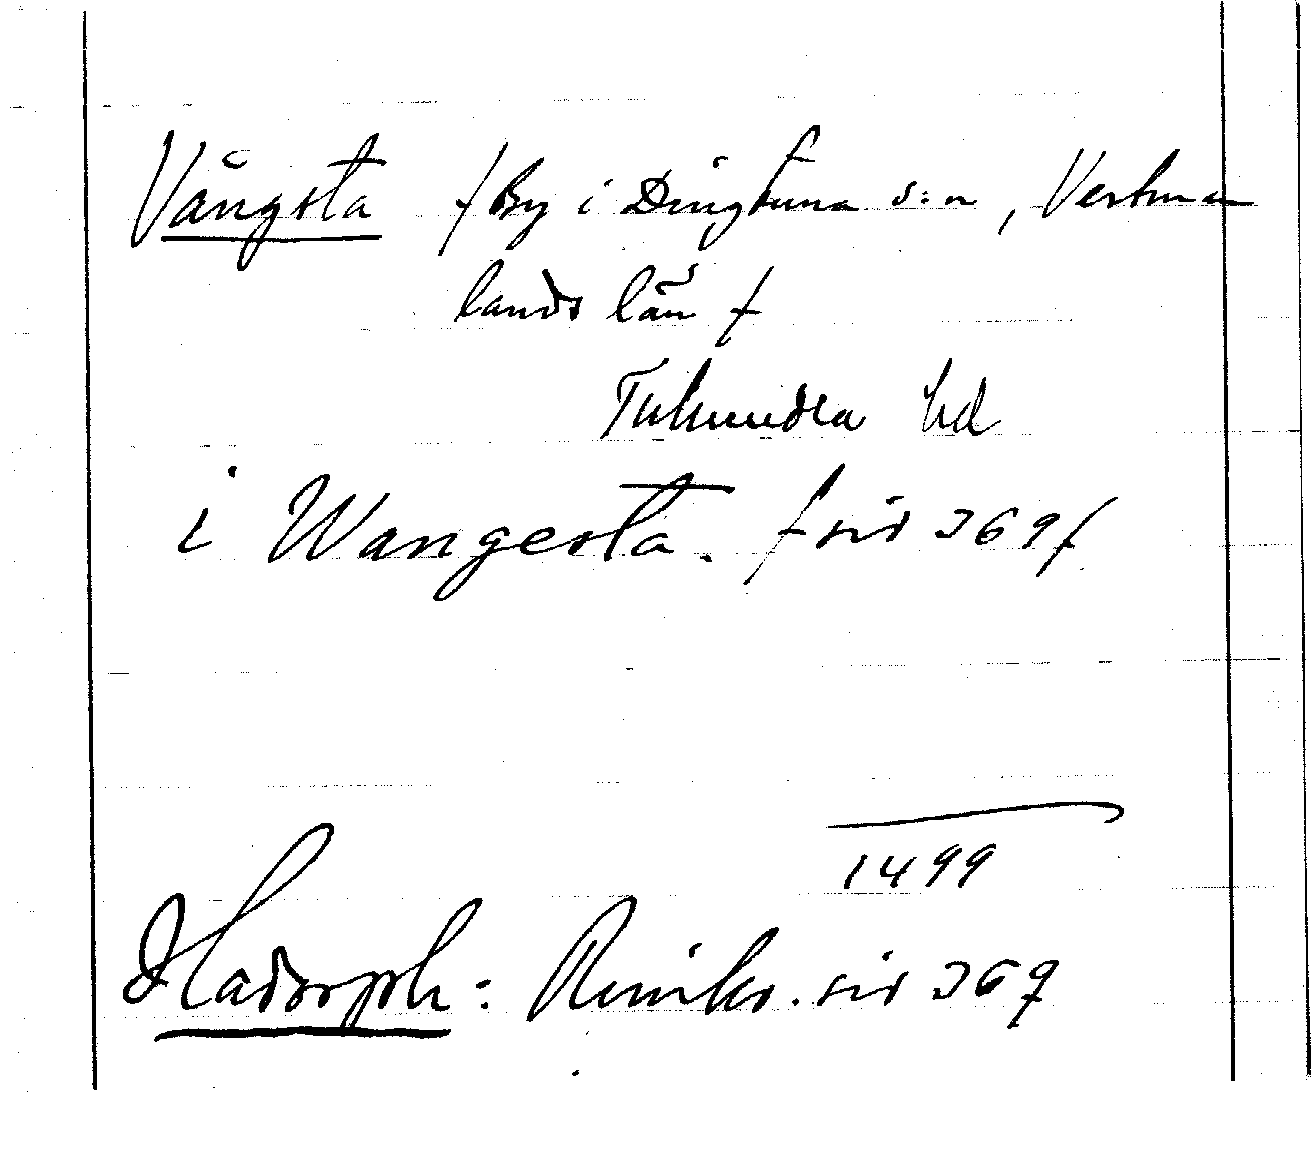 Vångsta /By i Dingtuna s:n, Vestman
lands län/
Tuhundra hd
i Wangesta. /sid 369/
1499
Hadorph: Rimkr. sid 369